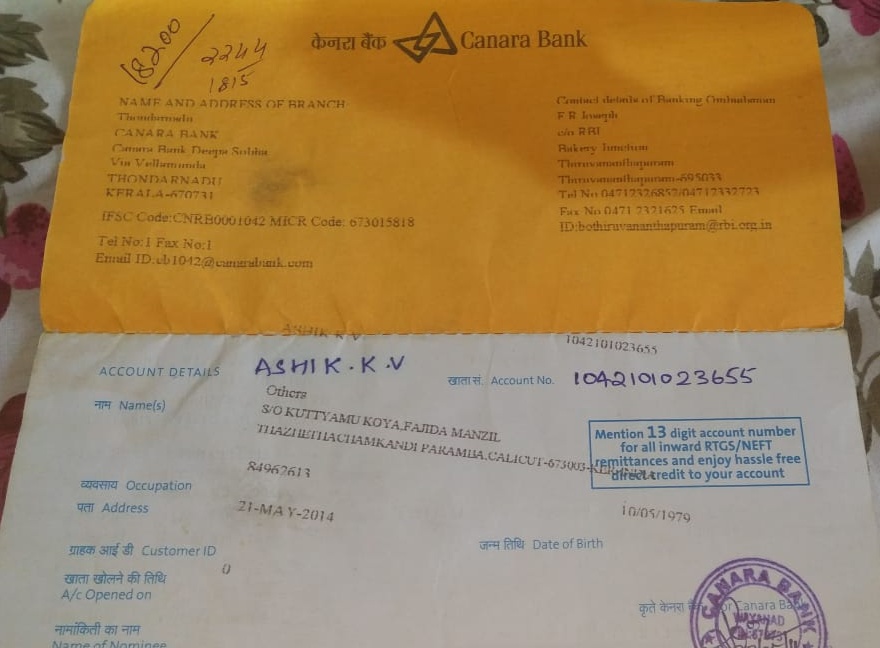 18200
2244
1815
केनरा बैंक Canara Bank
NAME AND ADDRESS OF BRANCH
Thondarnadu
CANARA BANK
Canara Bank Deepa Sobha
Via Vellamunda
THONDARNADU
KERALA-670731
IFSC Code:CNRB0001042 MICR Code: 673015818
Tel No:1 Fax No:1
Email ID:cb1042@canarabank.com
Contact details of Banking Ombudsman
F R Joseph
c/o RBI
Bakery Junction
Thiruvananthapuram
Thiruvananthapuram-695033
Tel No 04712326852/04712332723
Fax No 0471 2321625 Email
ID:bothiruvananthapuram@rbi.org.in
ASHIK K V
1042101023655
ACCOUNT DETAILS ASHIK.K.V
खाता सं. Account No. 1042101023655
Others
नाम Name(s)
S/O KUTTYAMU KOYA,FAJIDA MANZIL
THAZHETHACHAMKANDI PARAMBA,CALICUT-673003-KERALA
Mention 13 digit account number
for all inward RTGS/NEFT
remittances and enjoy hassle free
direct credit to your account
84962613
व्यवसाय Occupation
पता Address
21-MAY-2014
10/05/1979
ग्राहक आई डी Customer ID
जन्म तिथि Date of Birth
0
खाता खोलने की तिथि
A/c Opened on
कृते केनरा बैंक For Canara Bank
नामांकिती का नाम
Name of Nominee
CANARA BANK
WAYANAD